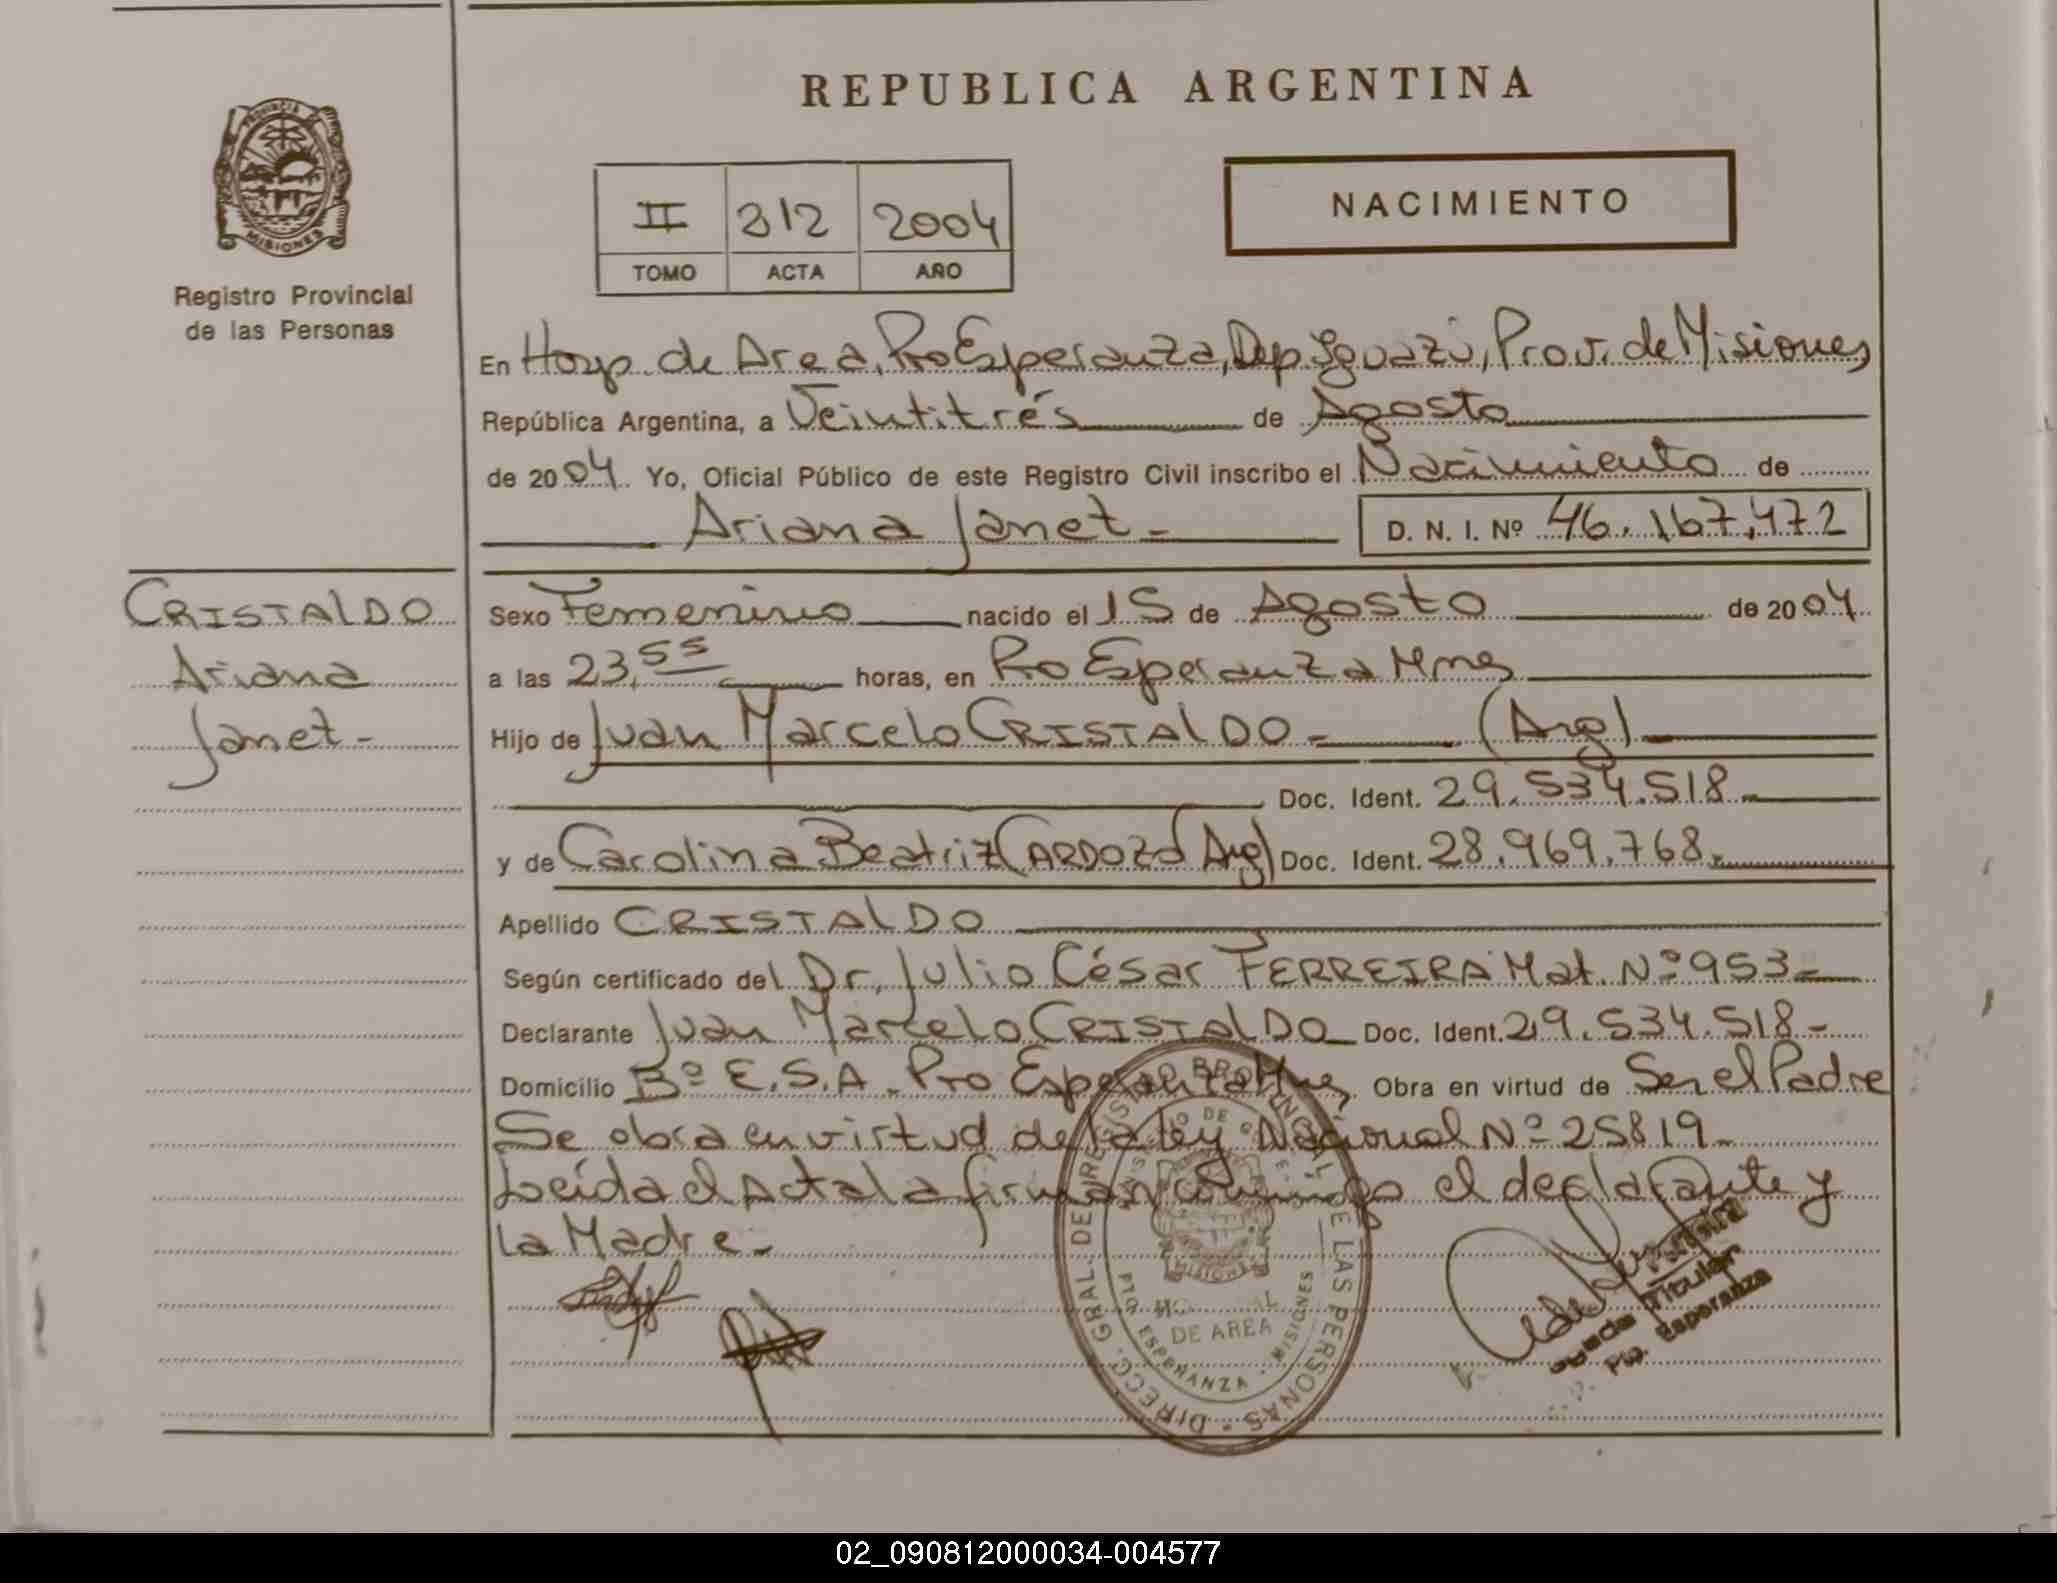 REPUBLICA ARGENTINA
PROVINCIA
MISIONES
Registro Provincial
de las Personas
II 312 2004
TOMO ACTA AÑO
NACIMIENTO
En Hosp. de Area, Pto Esperanza, Dep Iguazú, Prov. de Misiones
República Argentina, a Veintitrés de Agosto
de 2004. Yo, Oficial Público de este Registro Civil inscribo el Nacimiento de
Ariana Janet-
D. N. I. Nº 46.167.472
CRISTALDO
Ariana
Janet-
Sexo Femenino nacido el 15 de Agosto de 2004
a las 23,55 horas, en Pto Esperanza Mnes
Hijo de Juan Marcelo CRISTALDO- (Arg)
Doc. Ident. 29.534.518-
y de Carolina Beatriz CARDOZO (Arg) Doc. Ident. 28.969.768.
Apellido CRISTALDO
Según certificado del Dr. Julio César FERREIRA Mat. Nº 953-
Declarante Juan Marcelo CRISTALDO Doc. Ident. 29.534.518-
Domicilio Bº E.S.A. Pto Esperanza Mnes Obra en virtud de Ser el Padre
Se obra en virtud de la ley Nacional Nº 25819-
Leída el Acta la firman conmigo el declarante y
la Madre-
DIRECC. GRAL. DE REGISTRO PROVINCIAL DE LAS PERSONAS
MISIONES
DE AREA
PTO. ESPERANZA - MISIONES
Titular
Pto. Esperanza
02_090812000034-004577